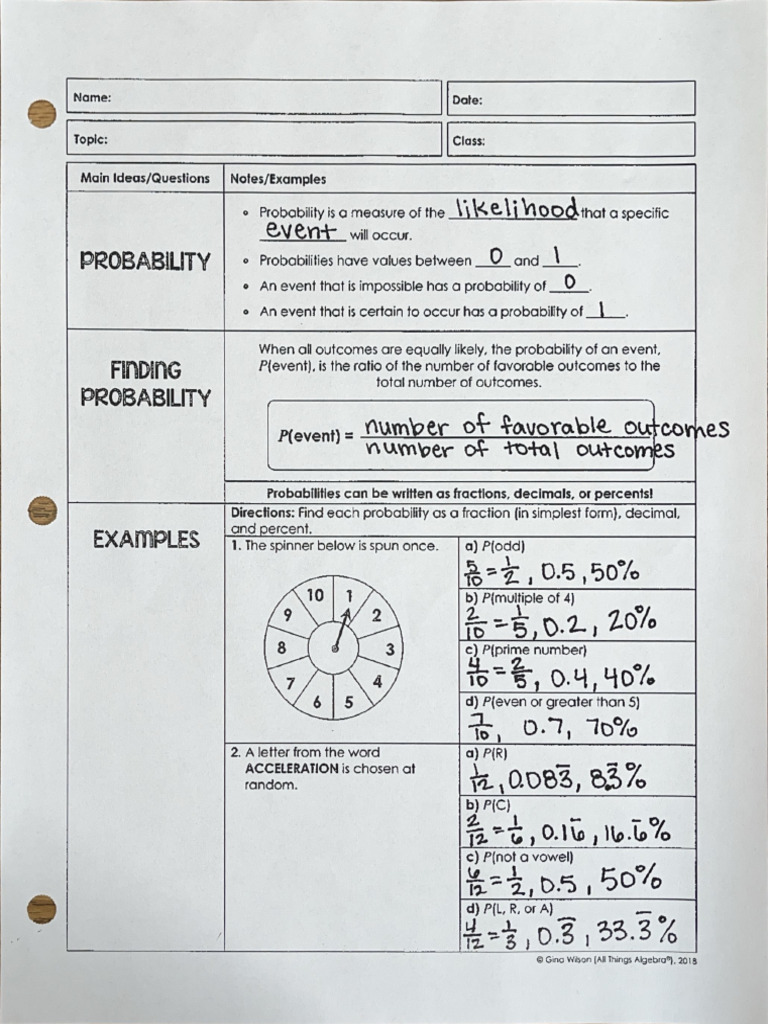 Name:
Date:
Topic:
Class:
Main Ideas/Questions
Notes/Examples
PROBABILITY
• Probability is a measure of the likelihood that a specific
event will occur.
• Probabilities have values between 0 and 1.
• An event that is impossible has a probability of 0.
• An event that is certain to occur has a probability of 1.
FINDING
PROBABILITY
When all outcomes are equally likely, the probability of an event,
P(event), is the ratio of the number of favorable outcomes to the
total number of outcomes.
P(event) = number of favorable outcomes
number of total outcomes
Probabilities can be written as fractions, decimals, or percents!
EXAMPLES
Directions: Find each probability as a fraction (in simplest form), decimal,
and percent.
1. The spinner below is spun once.
10 1
9 2
8 3
7 4
6 5
a) P(odd)
5/10 = 1/2, 0.5, 50%
b) P(multiple of 4)
2/10 = 1/5, 0.2, 20%
c) P(prime number)
4/10 = 2/5, 0.4, 40%
d) P(even or greater than 5)
7/10, 0.7, 70%
2. A letter from the word
ACCELERATION is chosen at
random.
a) P(R)
1/12, 0.083̅, 8.3̅%
b) P(C)
2/12 = 1/6, 0.16̅, 16.6̅%
c) P(not a vowel)
6/12 = 1/2, 0.5, 50%
d) P(L, R, or A)
4/12 = 1/3, 0.3̅, 33.3̅%
© Gina Wilson (All Things Algebra®), 2018